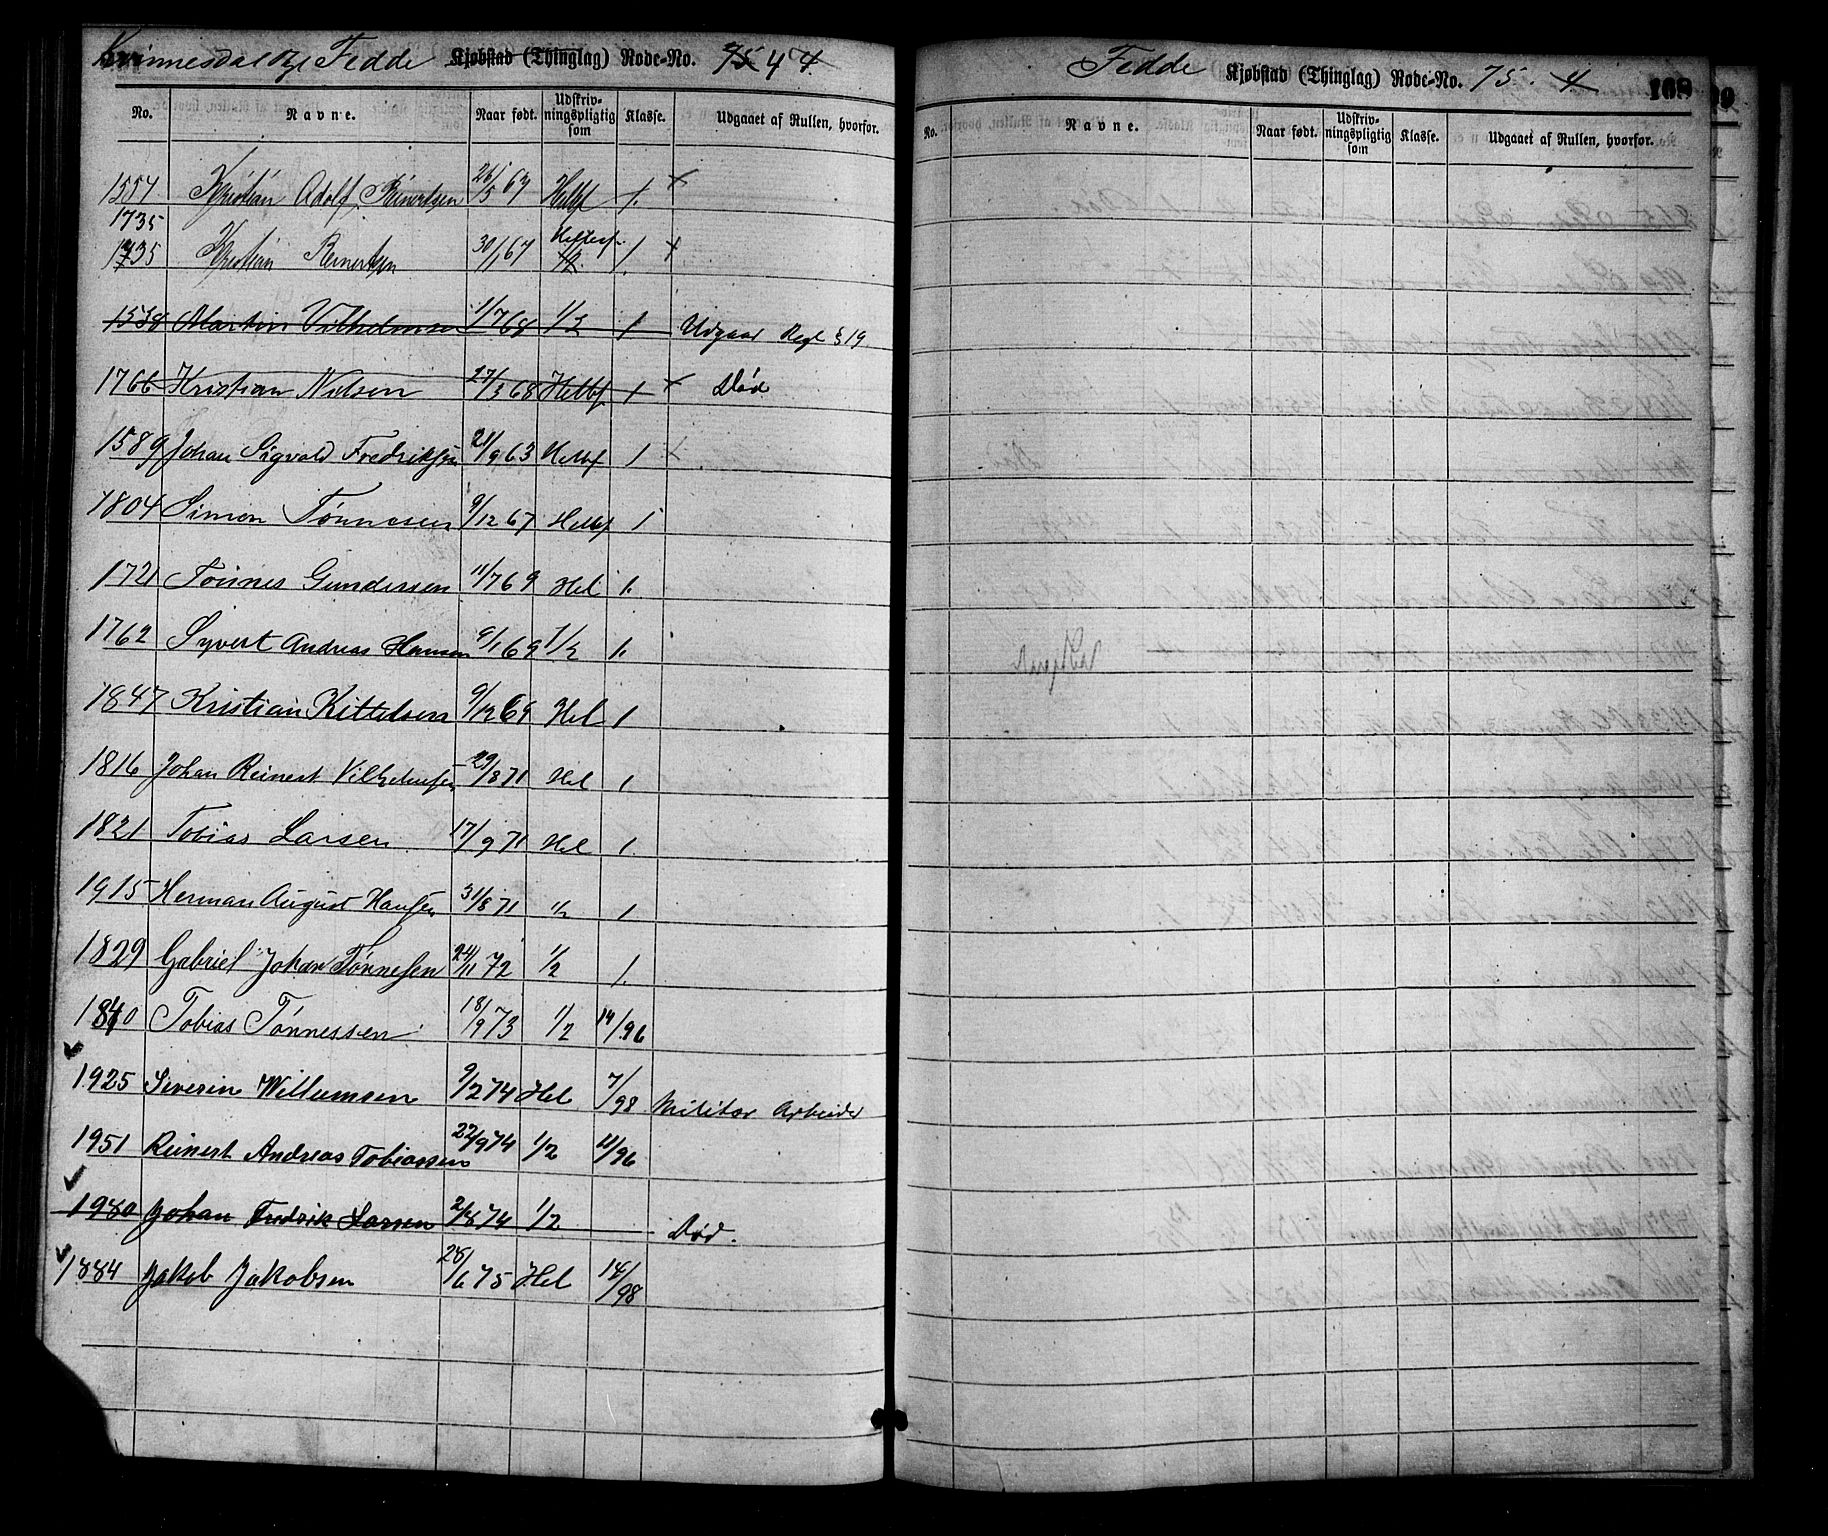 Kvinnesdal og Fedde Kjøbstad (Thinglag) Rode-No. 75 4 4.
No. Navne. Naar født. Udskriv-ningspligtig som Klasse. Udgaaet af Rullen, hvorfor.
1554 Kristian Adolf Reinertsen 26/5 67 Helbf 1. x
1735
1735 Kristian Reinertsen 30/1 67 1/2 1. x
1538 Martin Vilhelmsen 1/7 68 1/2 1 Udgaar Regl § 19.
1766 Kristian Nilsen 27/3 68 Helbf 1 x Död
1589 Johan Sigvald Fredriksen 21/9 63 Helbf 1
1804 Simon Tönnesen 9/12 67 Helbf 1
1721 Tönnes Gundersen 11/7 69 Hel 1.
1762 Syvert Andreas Hansen 9/1 69 1/2 1.
1847 Kristian Kittelsen 9/12 69 Hel 1
1816 Johan Reinert Vilhelmsen 29/8 71 Hel 1
1821 Tobias Larsen 17/9 71 Hel 1.
1915 Herman August Hansen 31/8 71 1/2 1
1829 Gabriel Johan Tönnesen 24/11 72 1/2 1.
1840 Tobias Tönnessen 18/9 73 1/2 14/96
1925 Severin Willumsen 9/2 74 Hel 7/98 Militær Arbeider
1951 Reinert Andreas Tobiassen 22/9 74 1/2 11/96
1980 Johan Fredrik Larsen 2/8 74 1/2 Död.
1884 Jakob Jakobsen 28/6 75 Hel 14/98
Fedde Kjøbstad (Thinglag) Rode-No. 75. 4. 109
No. Navne. Naar født. Udskriv-ningspligtig som Klasse. Udgaaet af Rullen, hvorfor.